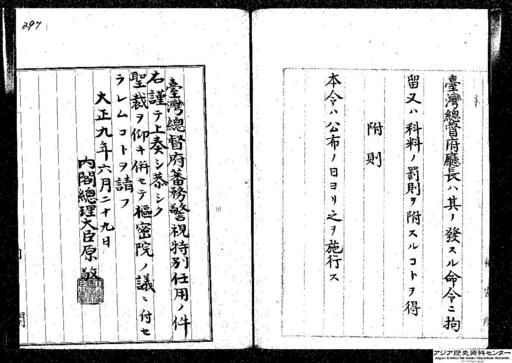 臺灣總督府廳長ハ其ノ發スル命令ニ拘
留又ハ科料ノ罰則ヲ附スルコトヲ得
附則
本令ハ公布ノ日ヨリ之ヲ施行ス
297
臺灣總督府蕃務警視特別任用ノ件
右謹テ上奏シ恭シク
聖裁ヲ仰キ併セテ樞密院ノ議ニ付セ
ラレムコトヲ請フ
大正九年六月二十九日
內閣總理大臣原敬
アジア歴史資料センター
Japan Center for Asian Historical Records